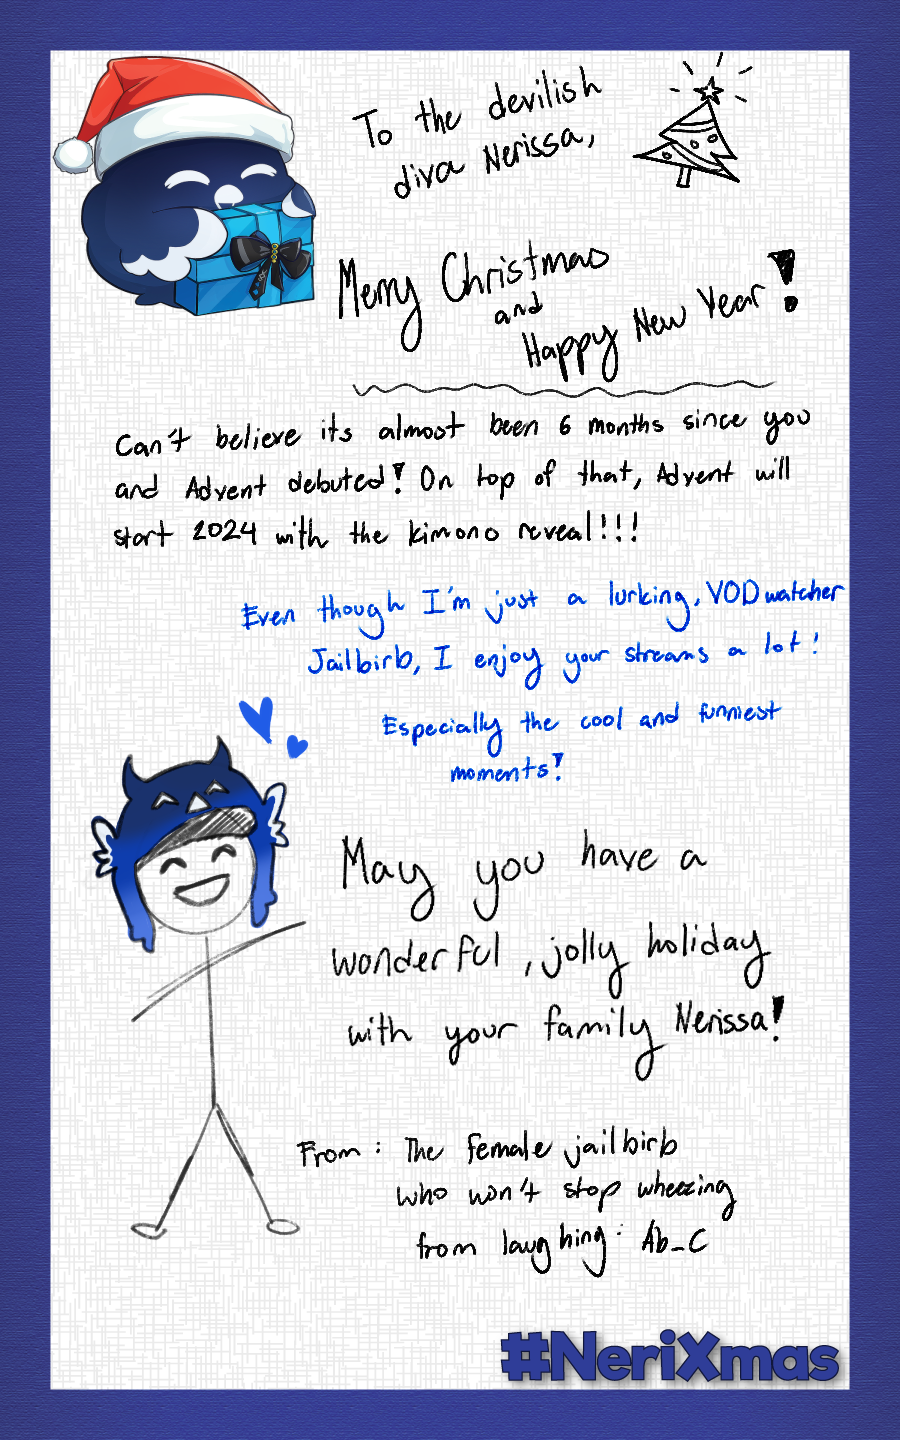 To the devilish
diva Nerissa,
Merry Christmas
and
Happy New Year!
Can't believe its almost been 6 months since you
and Advent debuted! On top of that, Advent will
start 2024 with the kimono reveal!!!
Even though I'm just a lurking, VOD watcher
Jailbirb, I enjoy your streams a lot!
Especially the cool and funniest
moments!
May you have a
wonderful, jolly holiday
with your family Nerissa!
From: The female jailbirb
who won't stop wheezing
from laughing: Ab_C
#NeriXmas